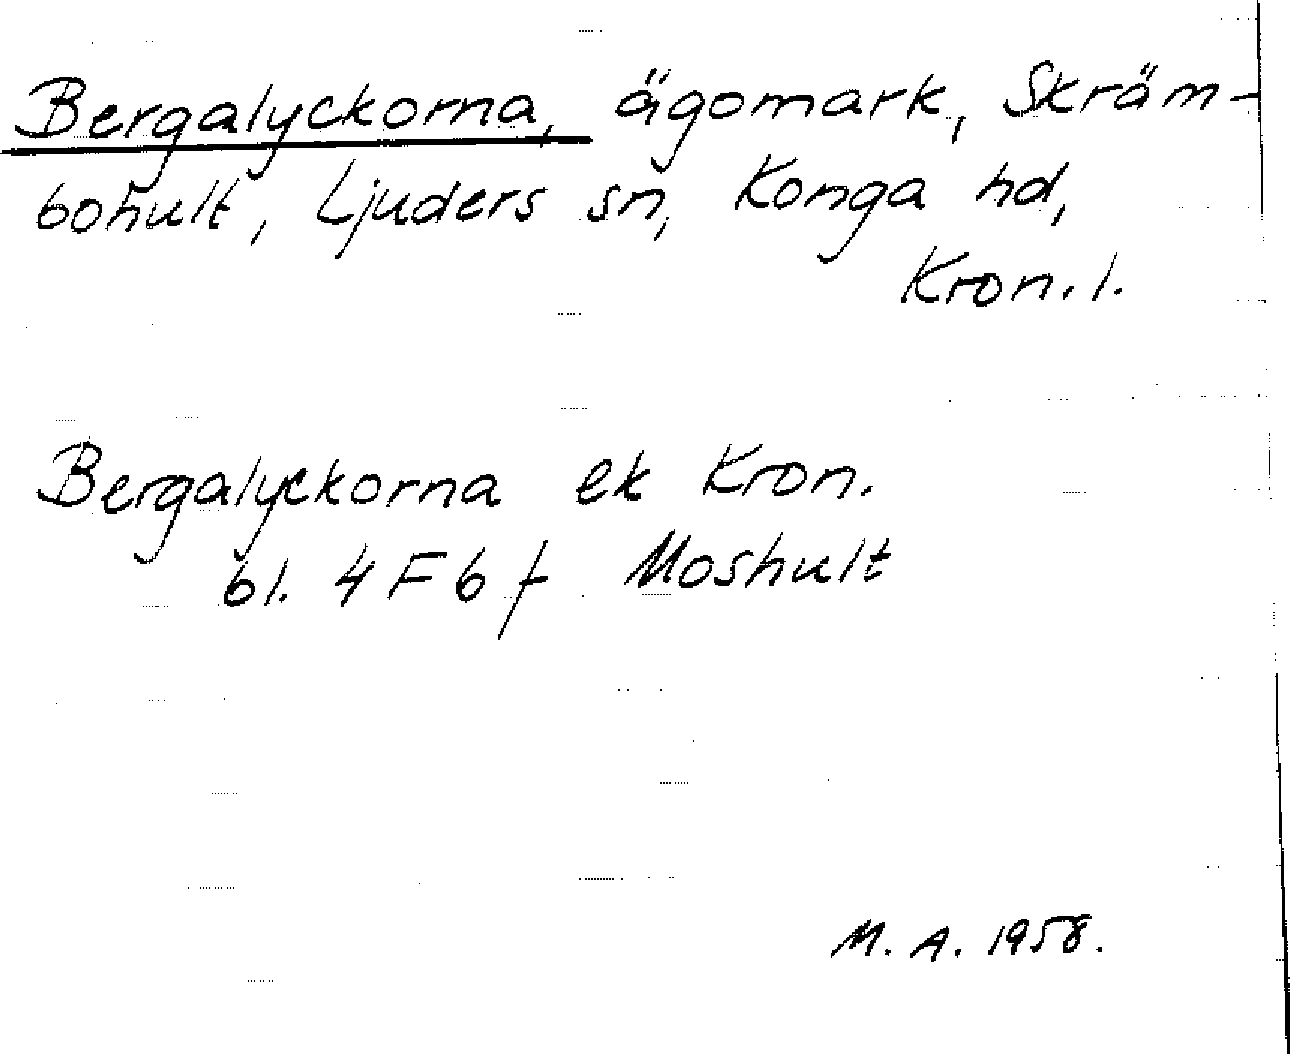 Bergalyckorna, ägomark, Skräm-
bohult, Ljuders sn, Konga hd,
Kron. l.
Bergalyckorna ek Kron.
bl. 4 F 6 f Moshult
M. A. 1958.